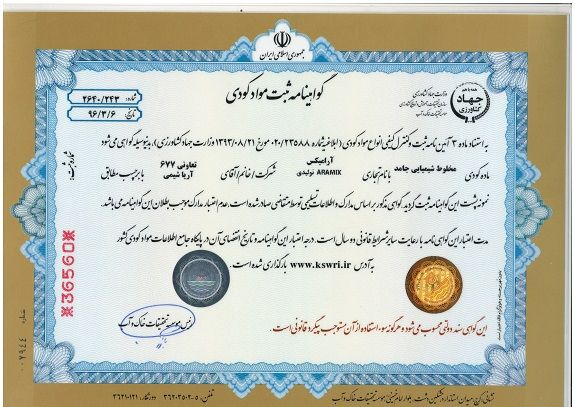 جمهوری اسلامی ایران
گواهینامه ثبت مواد کودی
شماره: ۲۶۴۰/۲۴۳
تاریخ: ۹۶/۳/۶
همه با هم
جهاد
کشاورزی
وزارت جهاد کشاورزی
موسسه تحقیقات خاک و آب
به استناد ماده ۳ آئین نامه ثبت و کنترل کیفی انواع مواد کودی (ابلاغیه شماره ۰۲۰/۲۳۵۸۸ مورخ ۱۳۹۳/۰۸/۲۱ وزارت جهاد کشاورزی)، بدینوسیله گواهی می شود
ماده کودی مخلوط شیمیایی جامد با نام تجاری آرامیکس ARAMIX تولیدی شرکت/خانم/آقای تعاونی ۶۷۷ آریا شیمی با برچسب مطابق
نمونه پشت این گواهینامه ثبت گردید. گواهی مذکور بر اساس مدارک و اطلاعات تسلیمی توسط متقاضی صادر شده است. عدم اعتبار مدارک موجب بطلان این گواهینامه می باشد.
مدت اعتبار این گواهی نامه با رعایت سایر شرایط قانونی دو سال است. درجه اعتبار این گواهینامه و تاریخ انقضای آن در پایگاه جامع اطلاعات مواد کودی کشور
به آدرس www.kswri.ir بارگذاری شده است.
شماره ثبت:
36560
رئیس موسسه تحقیقات خاک و آب
این گواهی سند دولتی محسوب می شود و هرگونه سوء استفاده از آن مستوجب پیگرد قانونی است.
شماره ۰۰۷۹۴۴
نشانی: کرج، میدان استاندارد، مشکین دشت، بلوار امام خمینی، موسسه تحقیقات خاک و آب
تلفن: ۵-۳۶۲۰۳۵۰۲ دورنگار: ۳۶۲۱۰۱۲۱